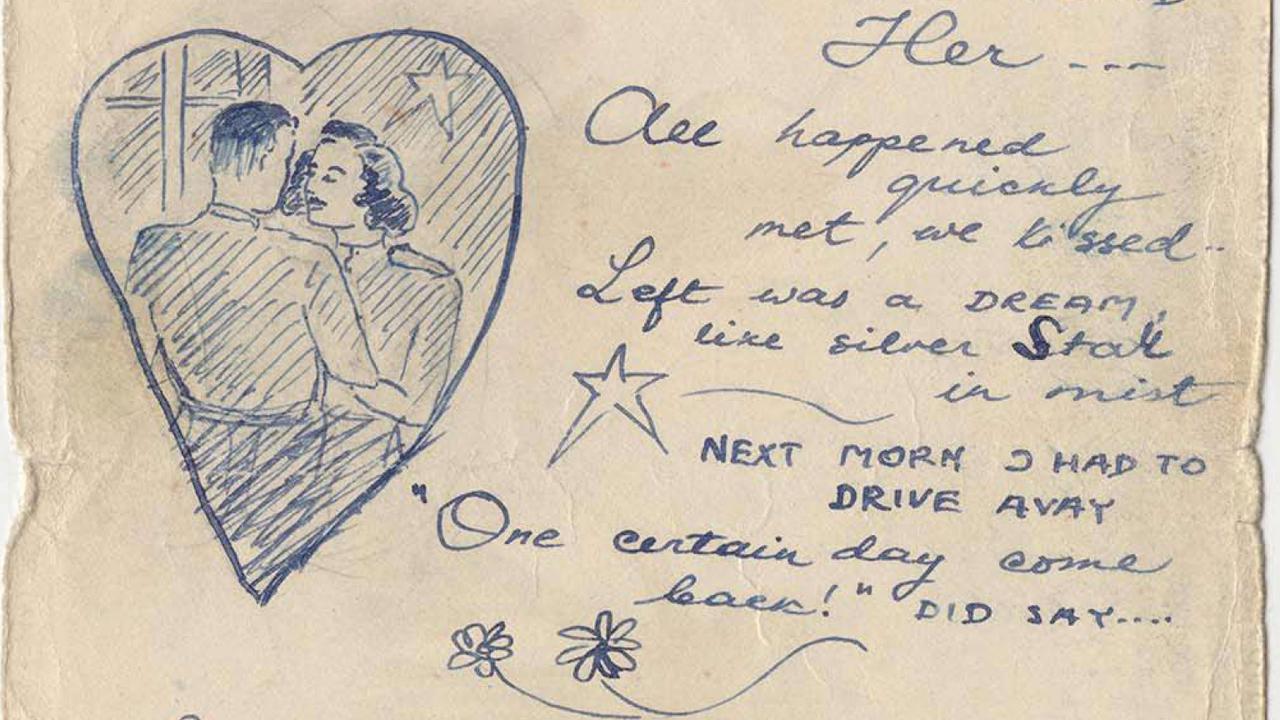 Her ---
All happened
quickly
met, we kissed--
Left was a DREAM,
like silver Star
in mist
NEXT MORN I HAD TO
DRIVE AVAY
"One certain day come
back!" DID SAY....